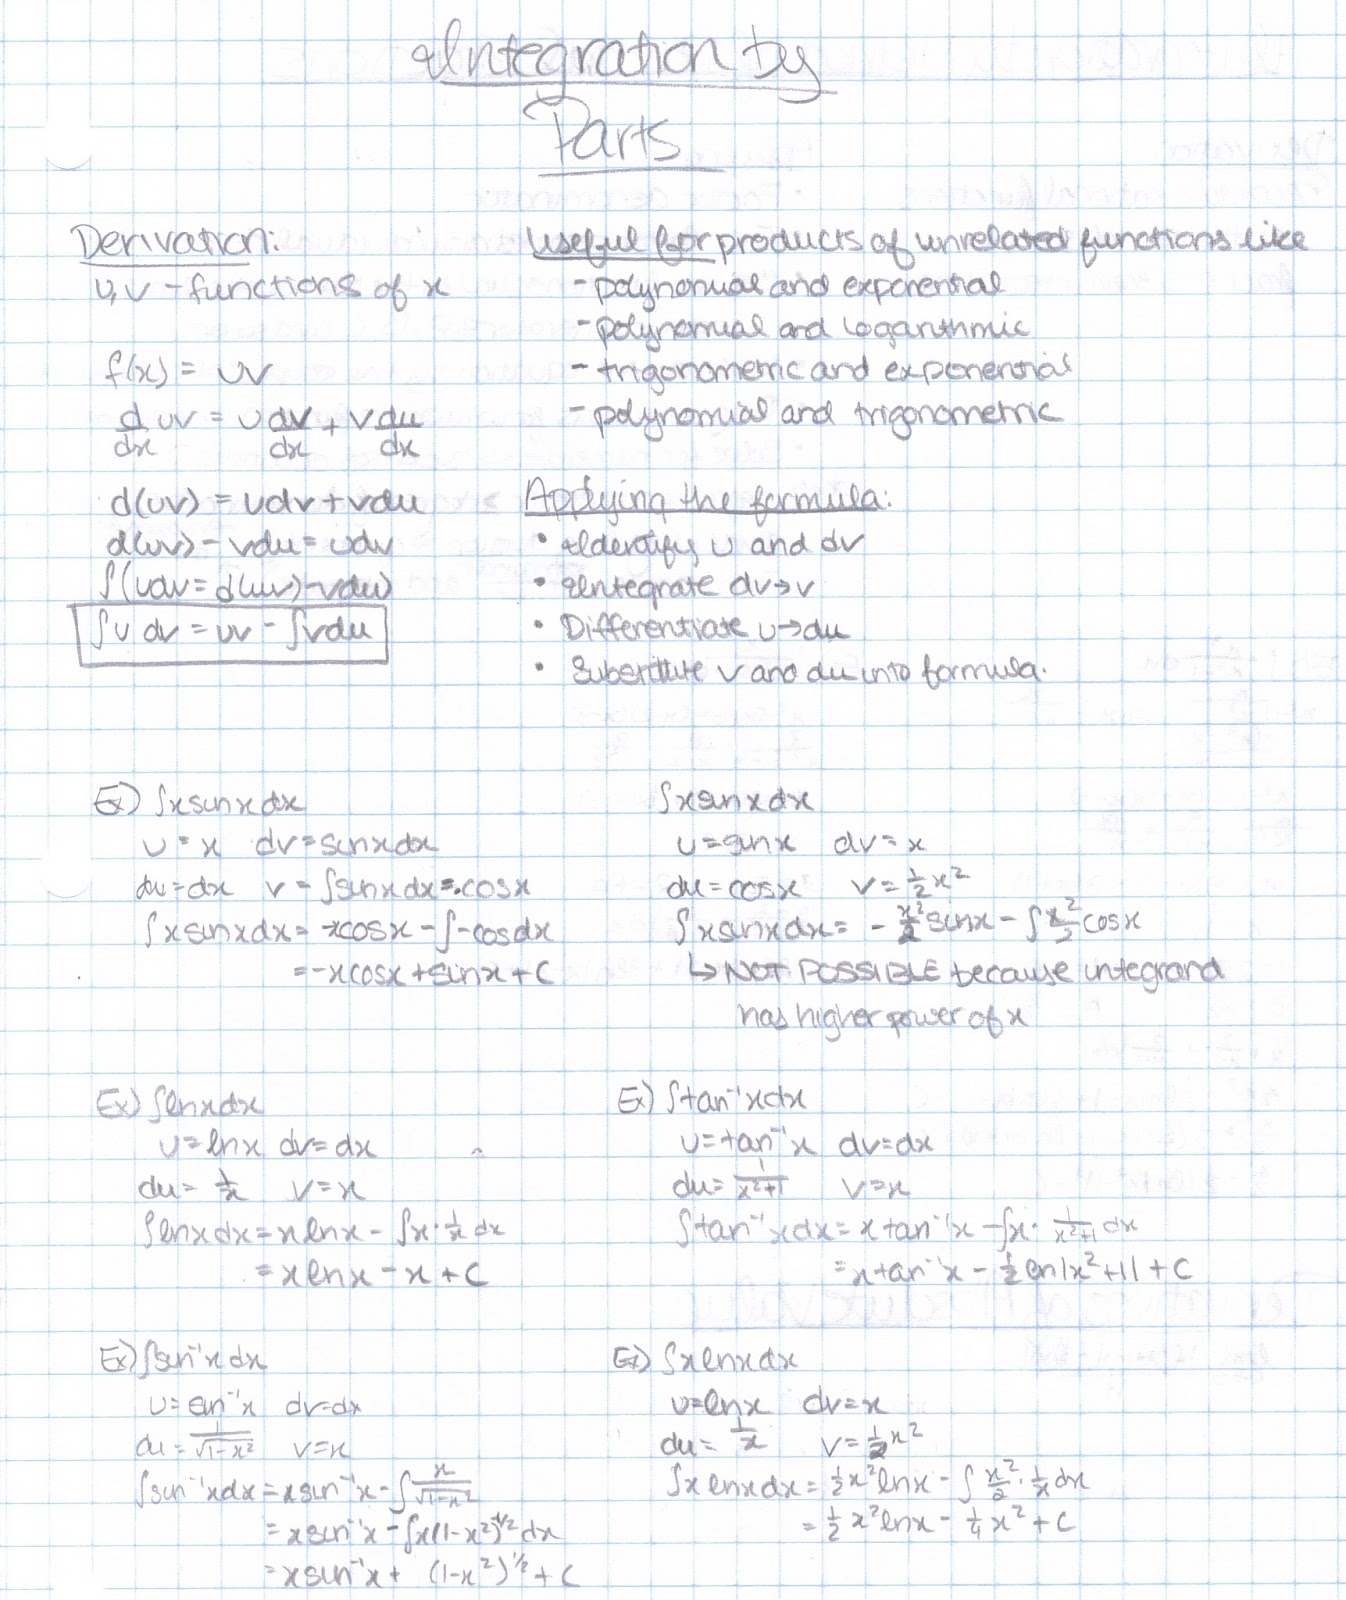 Integration by
Parts
Derivation:
u,v - functions of x
f(x) = uv
d/dx uv = u dv/dx + v du/dx
d(uv) = udv + vdu
d(uv) - vdu = udv
∫(udv = d(uv) - vdu)
∫u dv = uv - ∫vdu
Useful for products of unrelated functions like
- polynomial and exponential
- polynomial and logarithmic
- trigonometric and exponential
- polynomial and trigonometric
Applying the formula:
• Identify u and dv
• Integrate dv→v
• Differentiate u→du
• Substitute v and du into formula.
Ex) ∫xsinxdx
u = x dv = sinxdx
du = dx v = ∫sinxdx = -cosx
∫xsinxdx = -xcosx - ∫-cosdx
= -xcosx + sinx + C
∫xsinxdx
u = sinx dv = x
du = cosx v = 1/2 x²
∫xsinxdx = - x²/2 sinx - ∫x²/2 cosx
↳ NOT POSSIBLE because integrand
has higher power of x
Ex) ∫lnxdx
u = lnx dv = dx
du = 1/x v = x
∫lnxdx = xlnx - ∫x · 1/x dx
= xlnx - x + C
Ex) ∫tan⁻¹xdx
u = tan⁻¹x dv = dx
du = 1/x²+1 v = x
∫tan⁻¹xdx = xtan⁻¹x - ∫x · 1/x²+1 dx
= xtan⁻¹x - 1/2 ln|x²+1| + C
Ex) ∫sin⁻¹xdx
u = sin⁻¹x dv = dx
du = 1/√1-x² v = x
∫sin⁻¹xdx = xsin⁻¹x - ∫x/√1-x²
= xsin⁻¹x - ∫x(1-x²)^-1/2 dx
= xsin⁻¹x + (1-x²)^1/2 + C
Ex) ∫xlnxdx
u = lnx dv = x
du = 1/x v = 1/2 x²
∫xlnxdx = 1/2 x²lnx - ∫x²/2 · 1/x dx
= 1/2 x²lnx - 1/4 x² + C